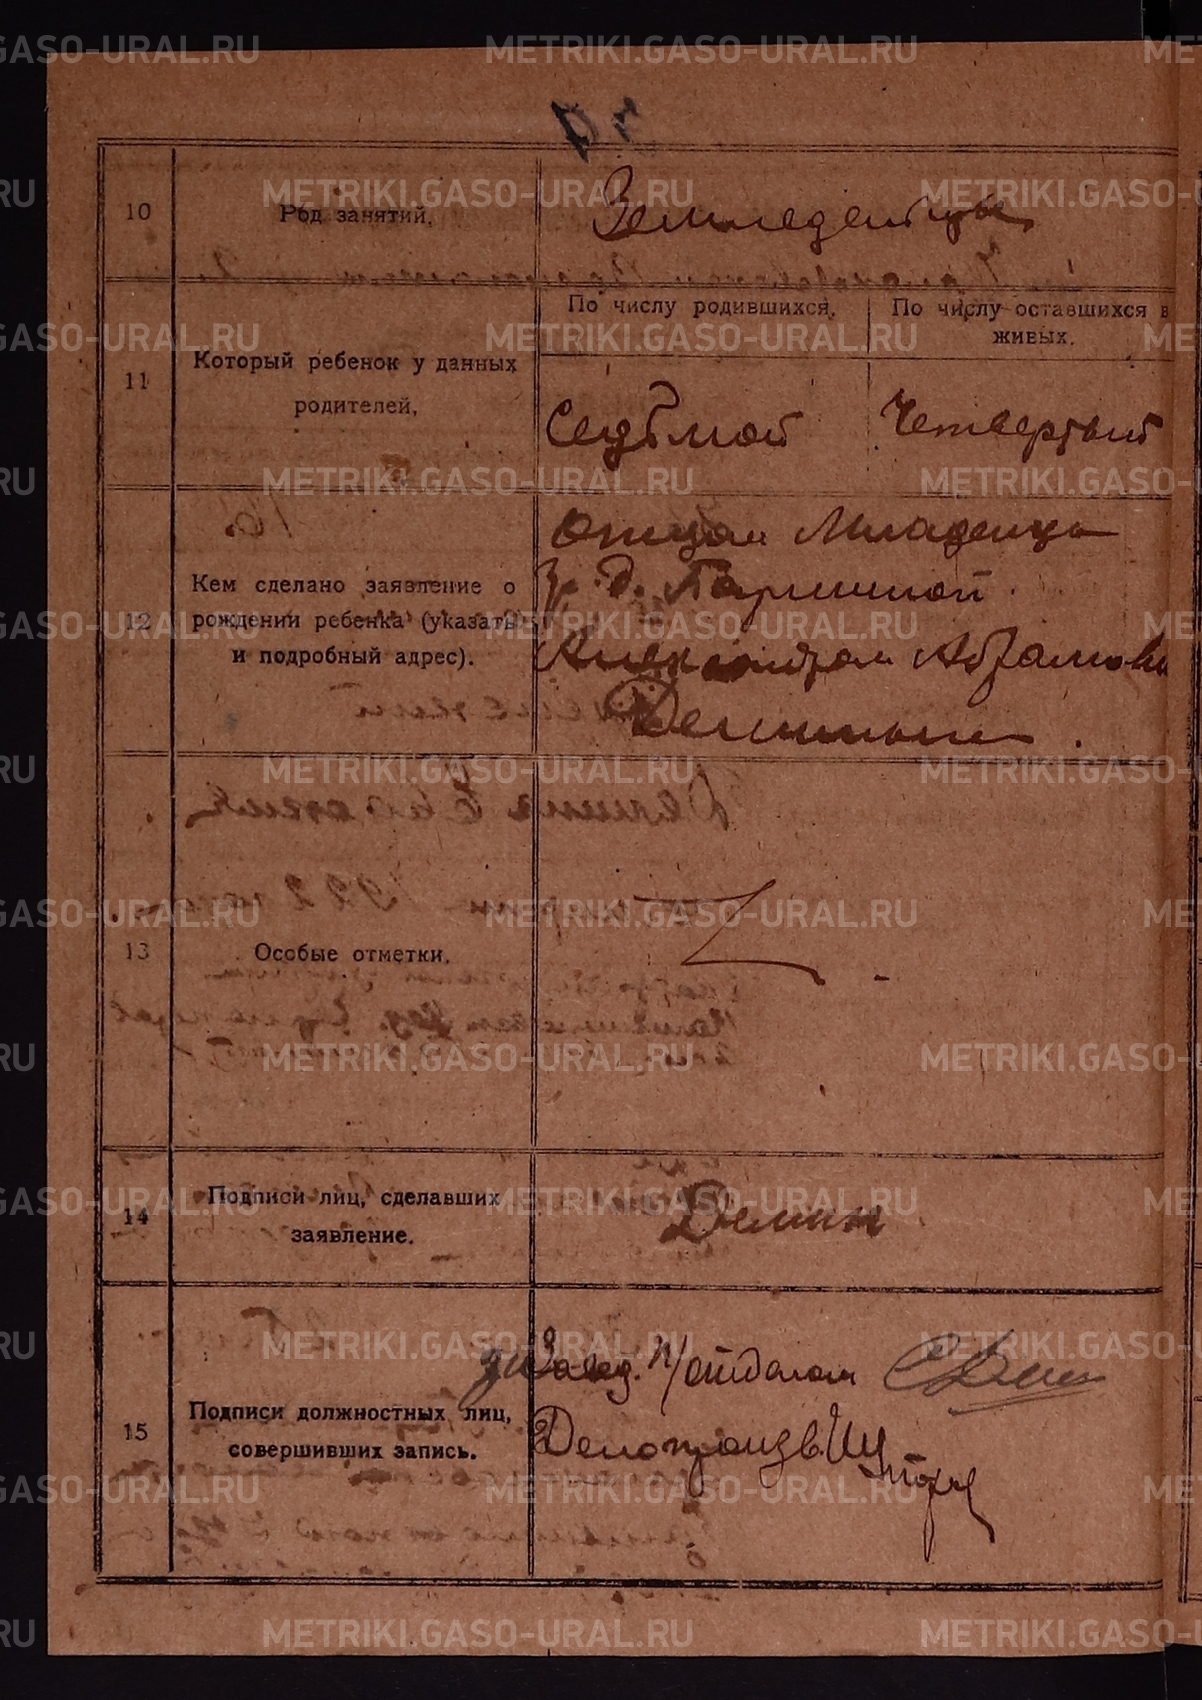 10
Род занятий.
Земледельцы
11
Который ребенок у данных
родителей,
По числу родившихся,
По числу оставшихся в
живых.
Седьмой
Четвертый
12
Кем сделано заявление о
рождении ребенка (указать
и подробный адрес).
Отцом Младенца
гр. д. Паршиной
Александром Абрамови
Деминым
13
Особые отметки.
14
Подписи лиц, сделавших
заявление.
Демин
15
Подписи должностных лиц,
совершивших запись.
Завед. П/отделом
Делопроизв.
METRIKI.GASO-URAL.RU